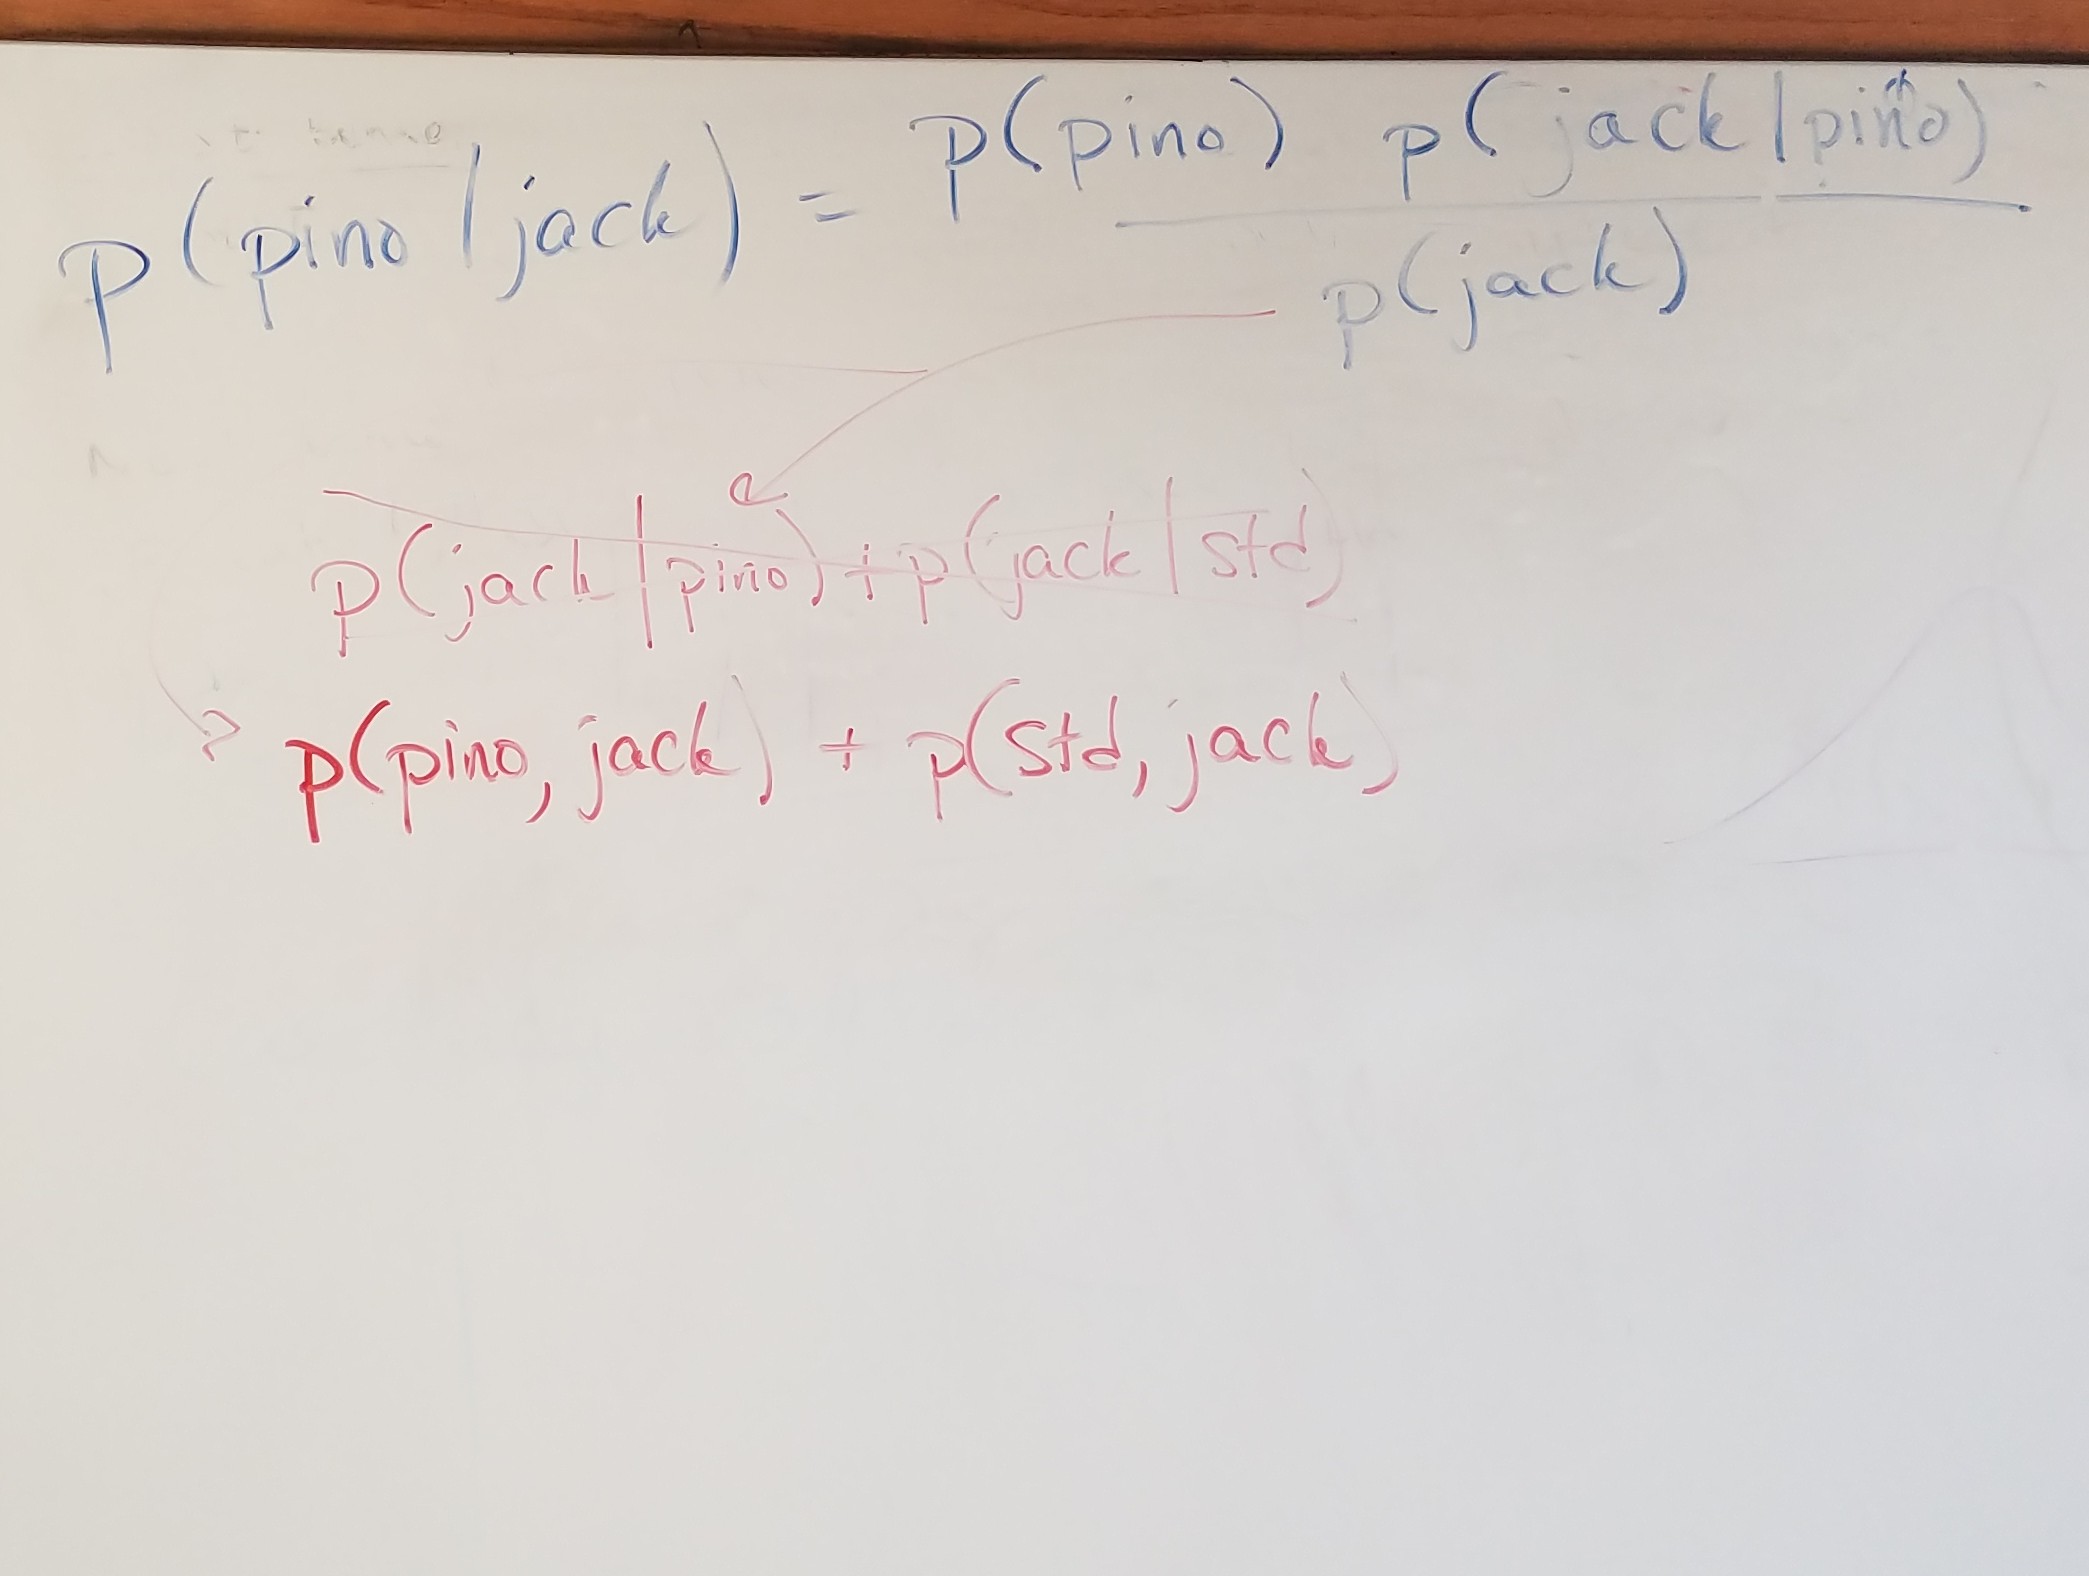 p(pino) p(jack|pino)
p(pino|jack) =
p(jack)
p(jack|pino) + p(jack|std)
p(pino, jack) + p(std, jack)